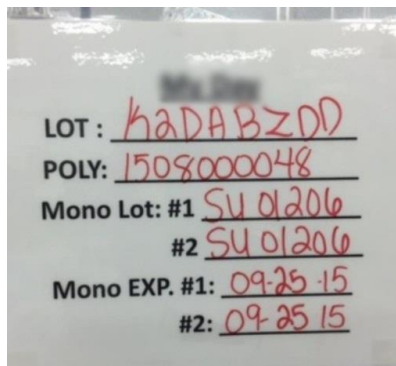 LOT : K2DABZDD
POLY: 1508000048
Mono Lot: #1 SU 01206
#2 SU 01206
Mono EXP. #1: 09-25-15
#2: 09-25 15